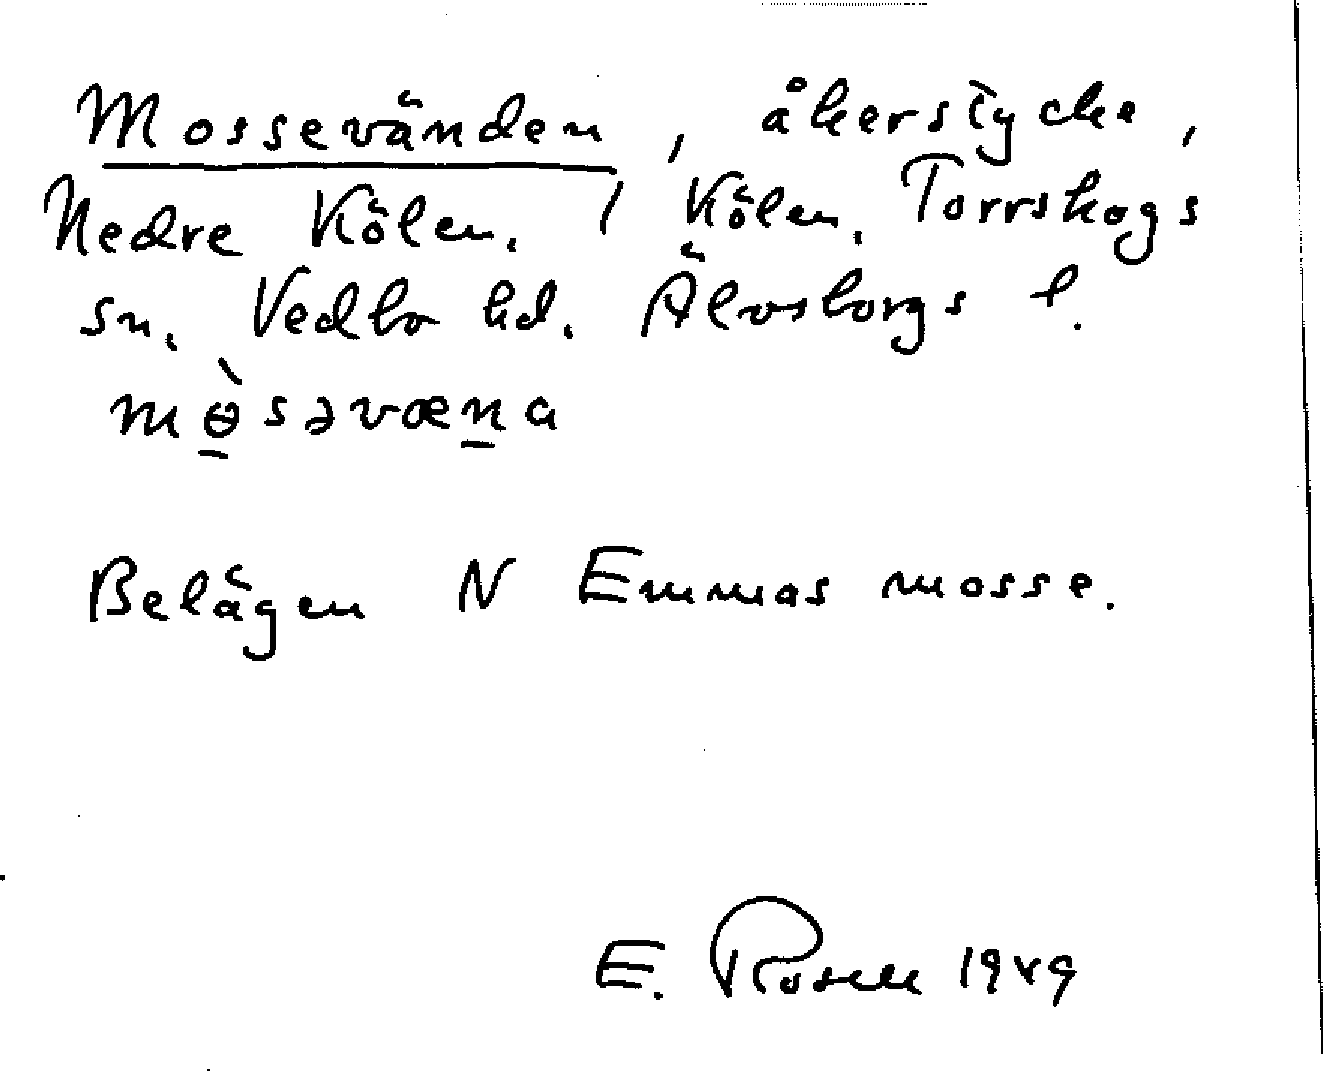 Mossevänden, åkerstycke,
Nedre Kölen, / Kölen, Torrskogs
sn, Vedbo hd. Älvsborgs l.
mɵ̠̀səvæn̠a
Belägen N Emmas mosse.
E. Rosell 1949